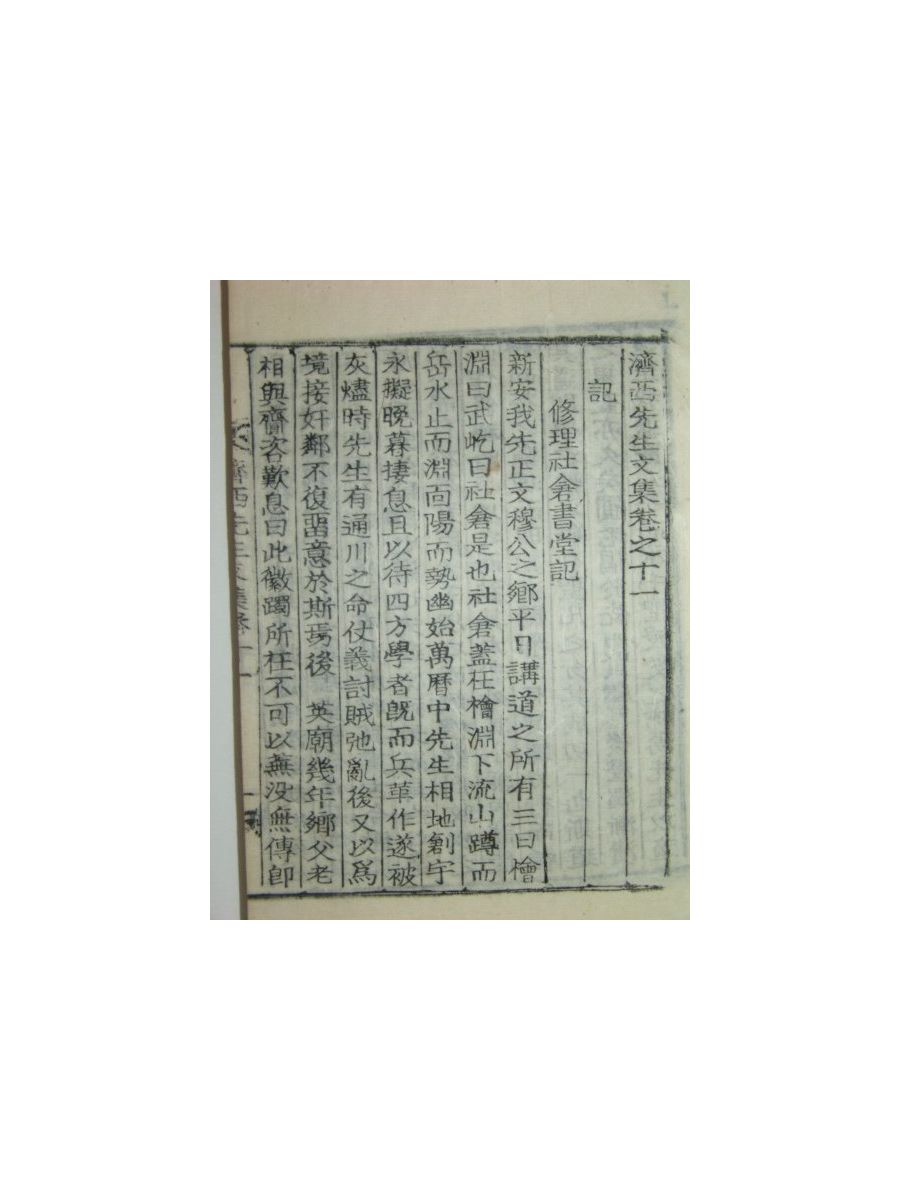 濟西先生文集卷之十一
記
修理社倉書堂記
新安我先正文穆公之鄉平日講道之所有三曰檜
淵曰武屹曰社倉是也社倉蓋在檜淵下流山蹲而
岳水止而淵面陽而勢幽始萬曆中先生相地創宇
永擬晩暮捿息且以待四方學者旣而兵革作遂被
灰燼時先生有通川之命仗義討賊弛亂後又以爲
境接奸鄰不復留意於斯焉後 英廟幾年鄉父老
相與齎咨歎息曰此徽躅所在不可以蕪没無傳卽
濟西先生文集卷十一